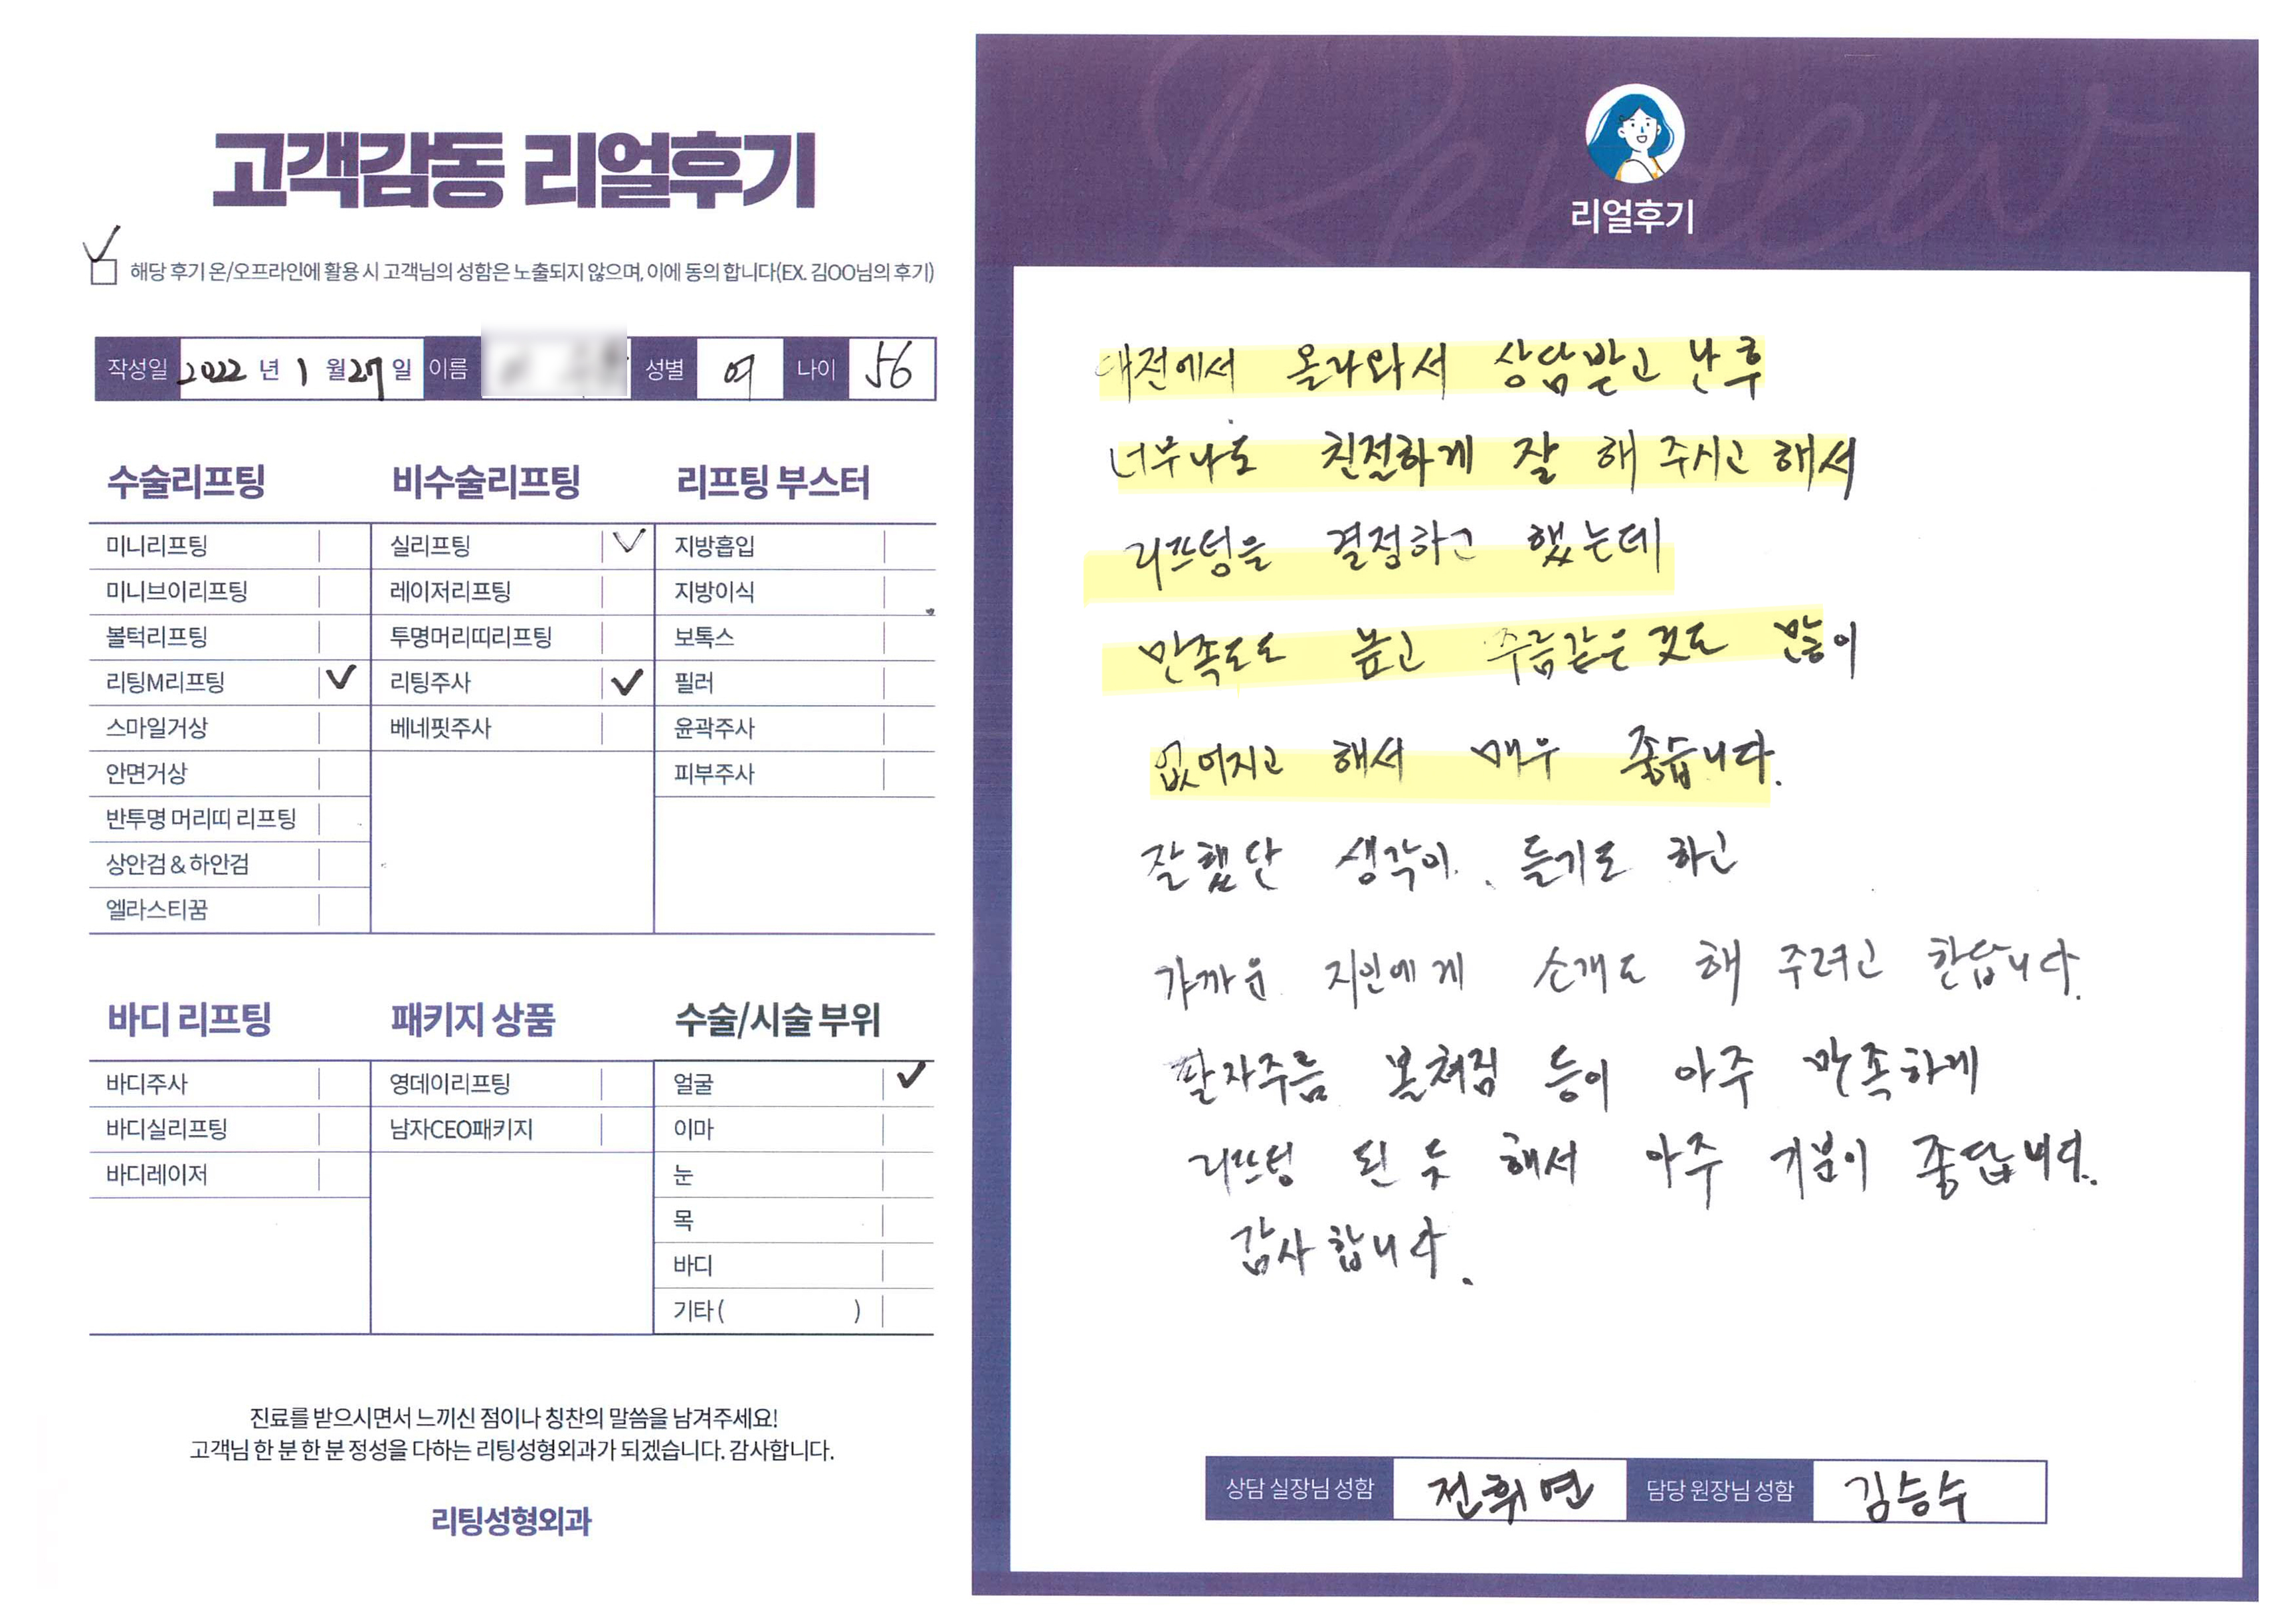 고객감동 리얼후기
해당 후기 온/오프라인에 활용 시 고객님의 성함은 노출되지 않으며, 이에 동의 합니다(EX. 김OO님의 후기)
작성일 2022 년 1 월 27 일 이름 성별 여 나이 56
수술리프팅 비수술리프팅 리프팅 부스터
미니리프팅 실리프팅 ✓ 지방흡입
미니브이리프팅 레이저리프팅 지방이식
볼턱리프팅 투명머리띠리프팅 보톡스
리팅M리프팅 ✓ 리팅주사 ✓ 필러
스마일거상 베네핏주사 윤곽주사
안면거상 피부주사
반투명 머리띠 리프팅
상안검 & 하안검
엘라스티꿈
바디 리프팅 패키지 상품 수술/시술 부위
바디주사 영데이리프팅 얼굴 ✓
바디실리프팅 남자CEO패키지 이마
바디레이저 눈
목
바디
기타 ( )
진료를 받으시면서 느끼신 점이나 칭찬의 말씀을 남겨주세요!
고객님 한 분 한 분 정성을 다하는 리팅성형외과가 되겠습니다. 감사합니다.
리팅성형외과
Review
리얼후기
대전에서 올라와서 상담받고 난 후
너무나도 친절하게 잘 해 주시고 해서
리프팅을 결정하고 했는데
만족도도 높고 주름같은 것도 많이
없어지고 해서 매우 좋습니다.
잘했단 생각이 들기도 하고
가까운 지인에게 소개도 해 주려고 한답니다.
팔자주름 볼쳐짐 등이 아주 만족하게
리프팅 된 듯 해서 아주 기분이 좋답니다.
감사합니다.
상담 실장님 성함 전휘연 담당 원장님 성함 김승수